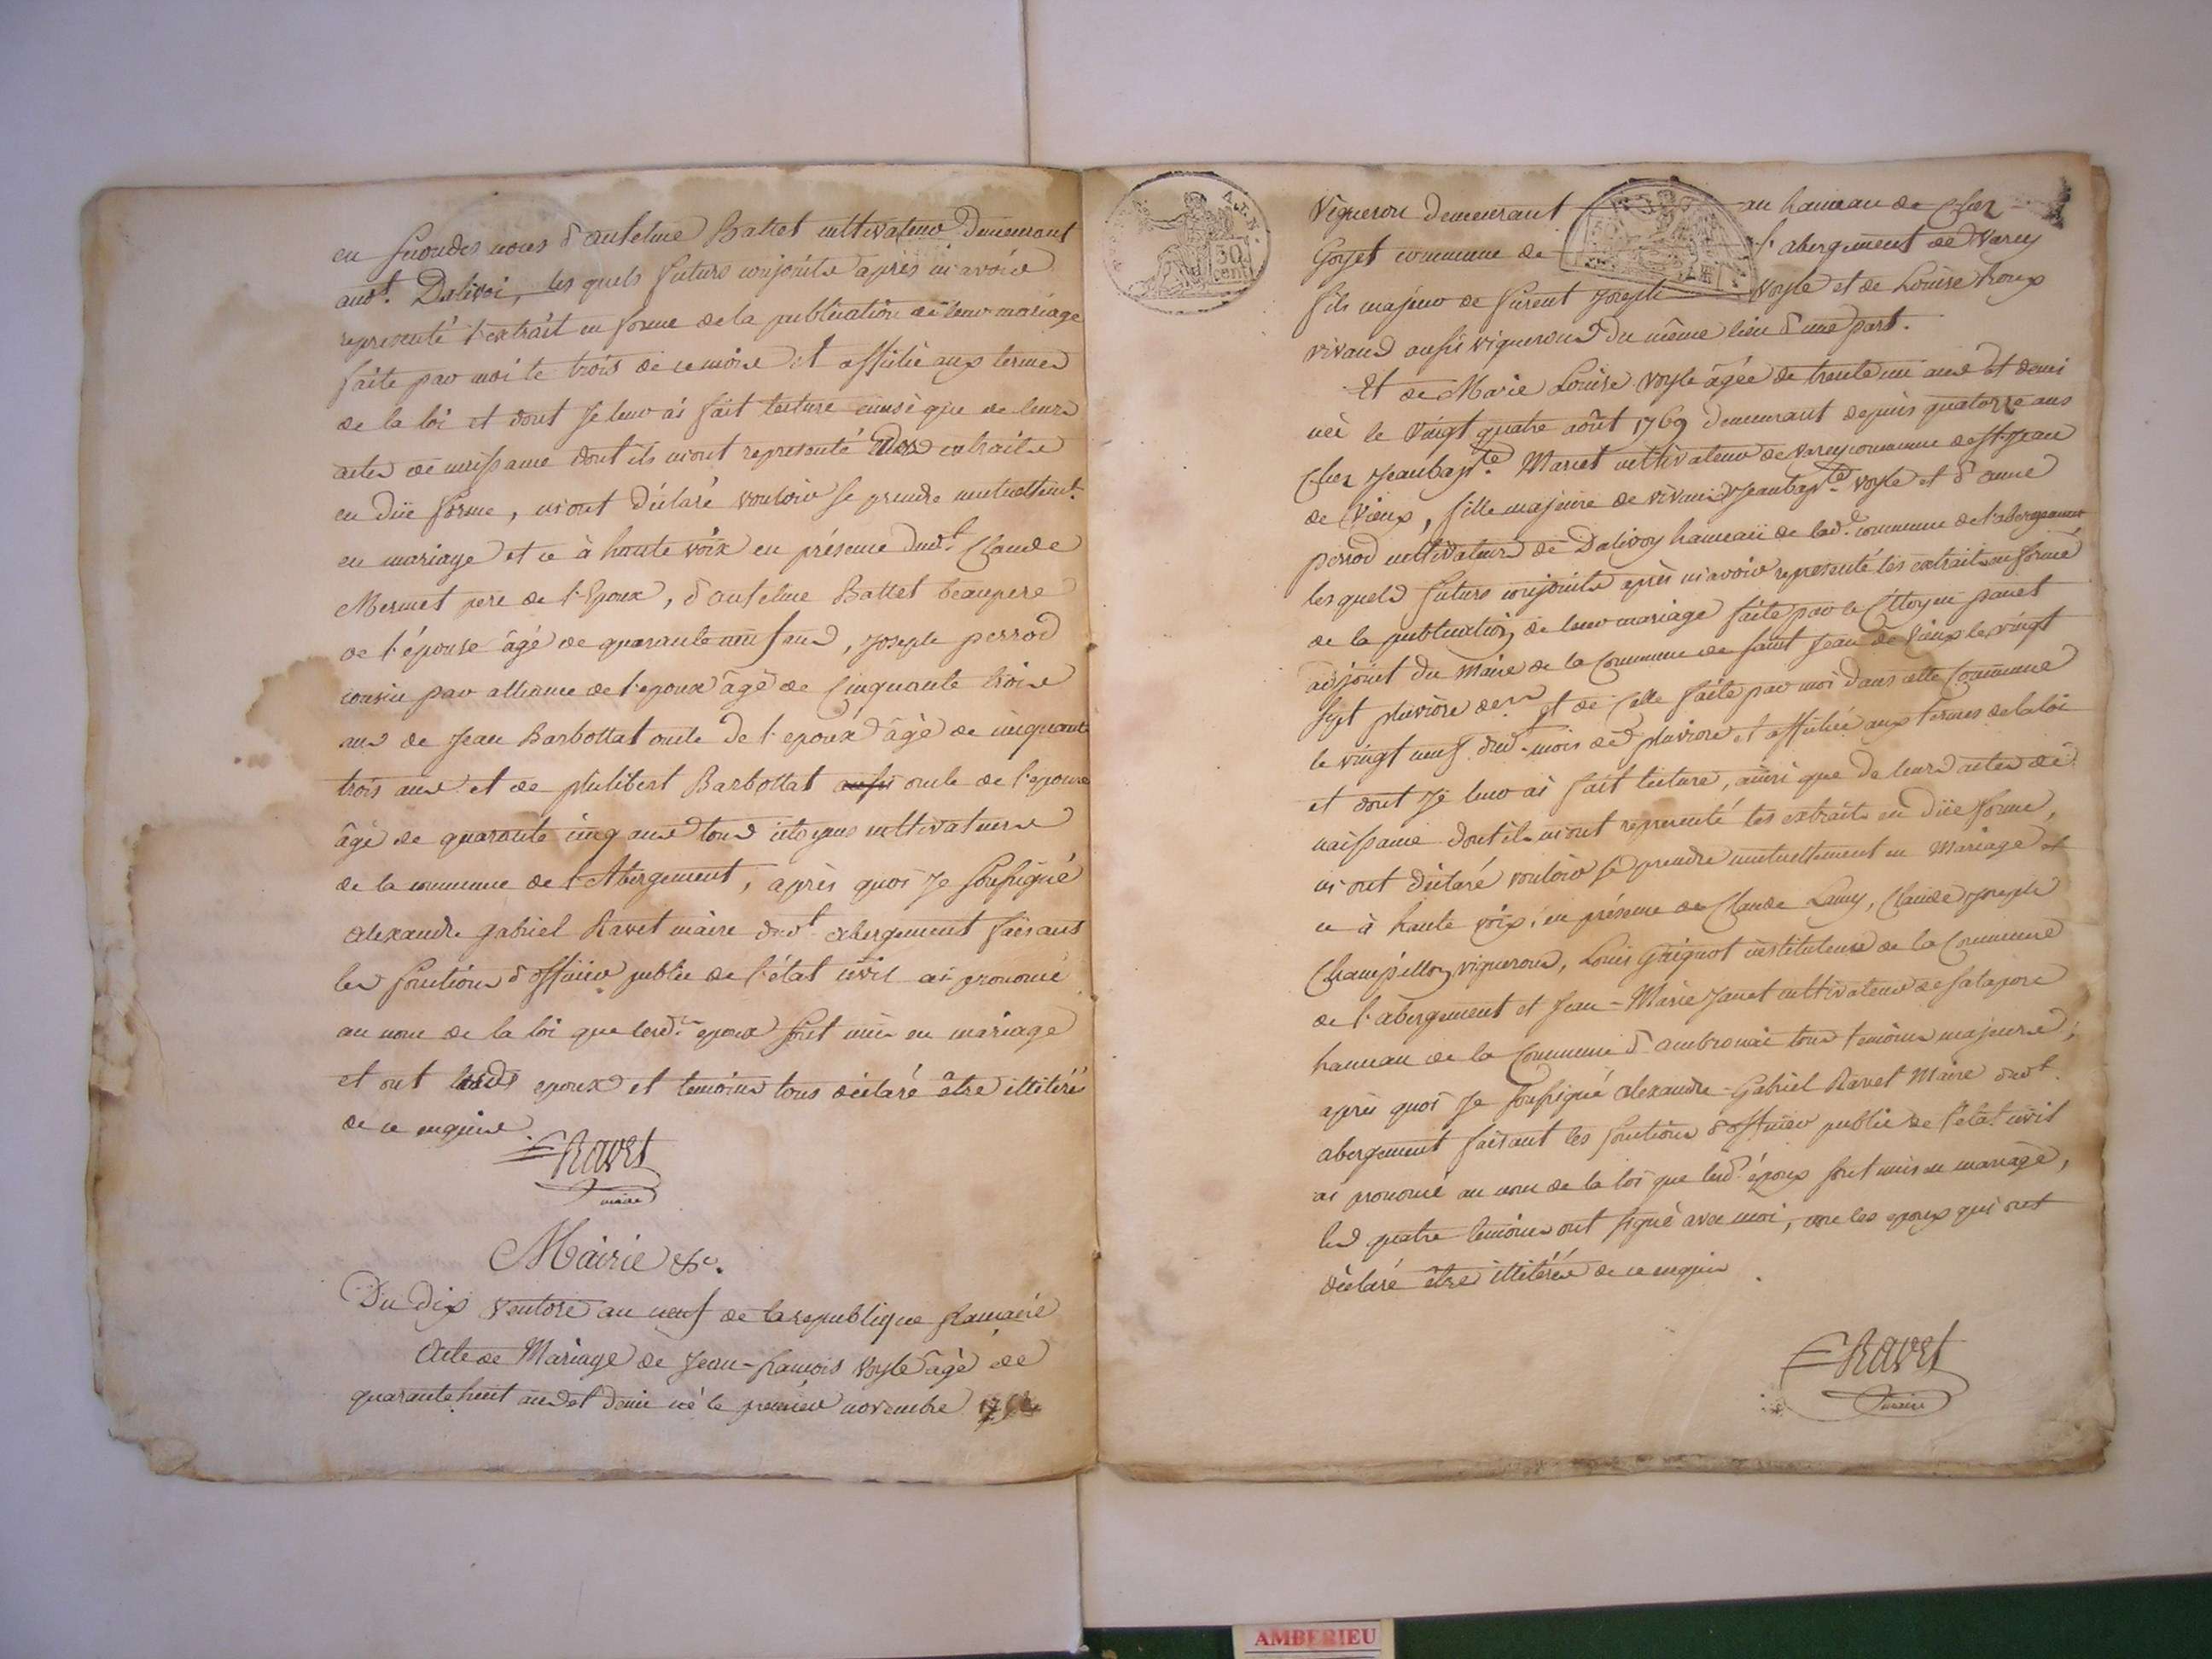 en secondes noces d'anselme Battet cultivateur Demeurant
audt. Dalivoi, les quels futurs conjoints après m'avoir
representé l'extrait en forme de la publication de leur mariage
faite par moi le trois de ce mois et affichée aux termes
de la loi et dont Je leur ai fait lecture ainsi que de leurs
actes de naissance dont ils m'ont representé les extraits
en düe forme, m'ont déclaré vouloir se prendre mutuellement
en mariage et ce à haute voix en présence dudt. Claude
Mermet pere de l'Epoux, d'anselme Battet beaupere
de l'épouse âgé de quarante neuf ans, Joseph perrod
cousin par alliance de l'epoux âgé de Cinquante trois
ans de Jean Barbottat oncle de l'epoux âgé de cinquante
trois ans et de philibert Barbottat aussi oncle de l'epouse
âgé de quarante cinq ans tous citoyens cultivateurs
de la commune de l'Abergement, après quoi Je soussigné
alexandre gabriel Ravet maire dudt. abergement faisant
les fonctions d'officier public de l'état civil ai prononcé
au nom de la loi que lesd. epoux sont unis en mariage
et ont lesds epoux et temoins tous déclaré être illitérés
de ce enquis
Ravet
maire
Mairie &c.
Du Dix Ventose an neuf de la republique francaise
Acte de Mariage de Jean-francois Voyle âgé de
quarante huit ans et demi né le premier novembre
Vigneron demeurant au hameau de Chez
Goyet commune de l'abergement de Varey
fils majeur de furent Joseph Voyle et de Louise Roux
vivans aussi vignerons du même lieu d'une part.
Et de Marie Louise Voyle âgée de trente un ans et demi
née le Vingt quatre août 1769 demeurant depuis quatorze ans
Chez Jeanbapte. Mariet cultivateur de Varey commune de St. Jean
de Vieux, fille majeure de vivans Jeanbapte. Voyle et d'anne
perrod cultivateurs de Dalivoy hameau de lad. commune de l'abergement
les quels futurs conjoints après m'avoir representé les extraits en forme
de la publication de leur mariage faite par le Citoyen panet
adjoint du Maire de la Commune de saint Jean de Vieux le vingt
sept pluviose der. et de Celle faite par moi dans cette Commune
le vingt neuf dud. mois de pluviose et affichée aux termes de la loi
et dont Je leur ai fait lecture, ainsi que de leurs actes de
naissance dont ils m'ont representé les extraits en düe forme,
m'ont déclaré vouloir se prendre mutuellement en Mariage et
ce à haute voix, en présence de Claude Lamy, Claude Joseph
Champillon vignerons, Louis Grignot instituteur de la Commune
de l'abergement et Jean-Marie Janet cultivateur de salapore
hameau de la Commune d'ambronai tous temoins majeurs,
après quoi Je soussigné alexandre-Gabriel Ravet Maire dudt.
abergement faisant les fonctions d'officier public de l'état civil
ai prononcé au nom de la loi que lesd. époux sont unis en mariage,
les quatre temoins ont signé avec moi, non les epoux qui ont
déclaré être illitérés de ce enquis
Ravet
maire
30
cent
AMBERIEU